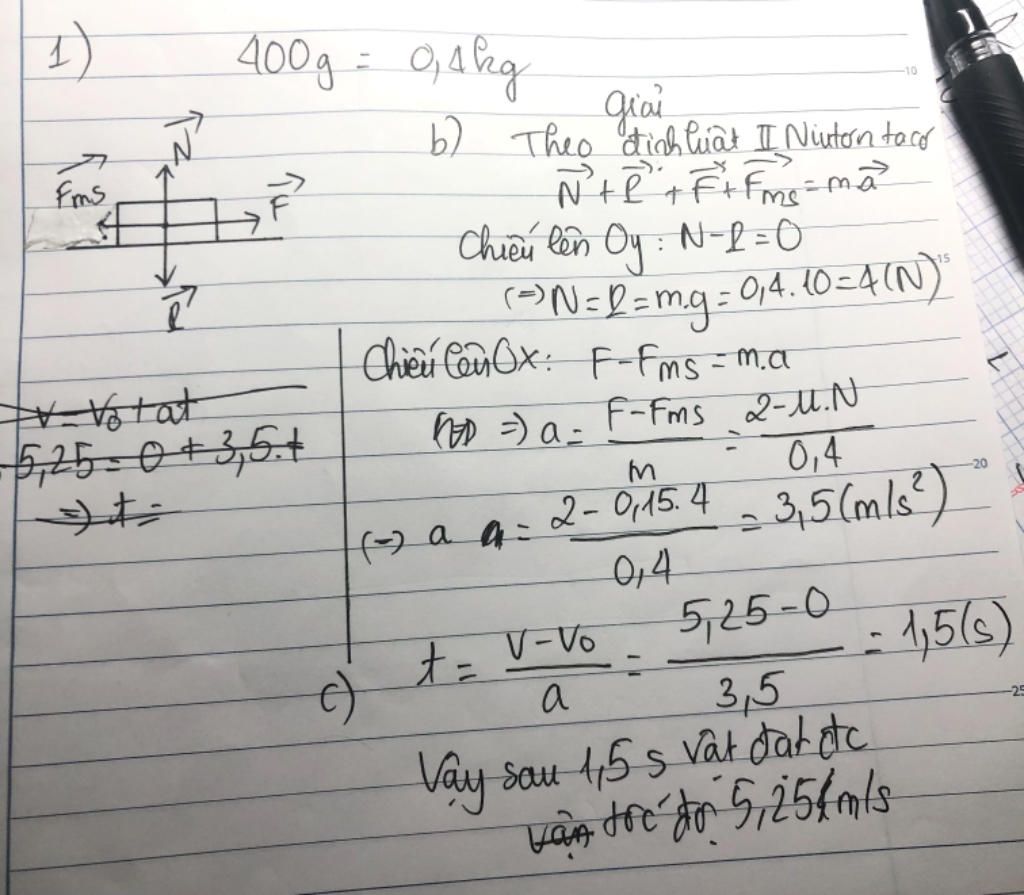 1) 400g = 0,4kg
Giải
N
Fms
F
P
b) Theo định luật II Niutơn ta có
N + P + F + Fms = ma
Chiếu lên Oy : N-P=0
(=) N = P = m.g = 0,4.10 = 4(N)
Chiếu lên Ox: F - Fms = m.a
=) a = F - Fms / m = 2 - μ.N / 0,4
(=) a = 2 - 0,15.4 / 0,4 = 3,5 (m/s²)
v = v₀ + at
5,25 = 0 + 3,5.t
=) t =
c) t = v - v₀ / a = 5,25 - 0 / 3,5 = 1,5(s)
Vậy sau 1,5 s vật đạt đc
vận tốc độ 5,25 m/s
10
15
20
25